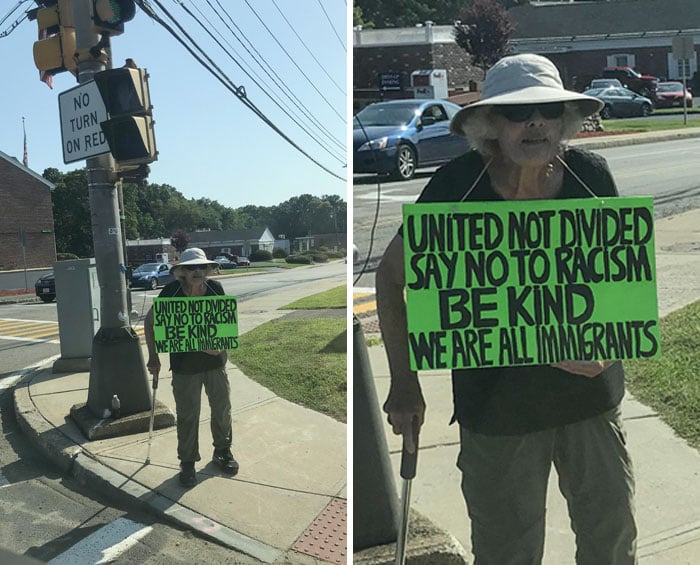 NO
TURN
ON RED
UNITED NOT DIVIDED
SAY NO TO RACISM
BE KIND
WE ARE ALL IMMIGRANTS
UNITED NOT DIVIDED
SAY NO TO RACISM
BE KIND
WE ARE ALL IMMIGRANTS